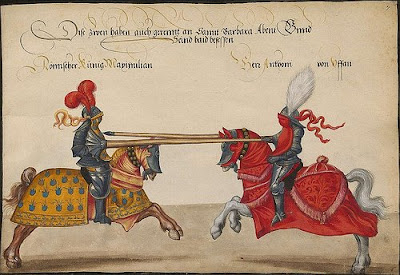 Dise zwen haben auch gerennt an Sannt Barbara Abent Unnd
Sand baid besessen
Römischer Künig Maximilian
Herr Anthoni von Yffan